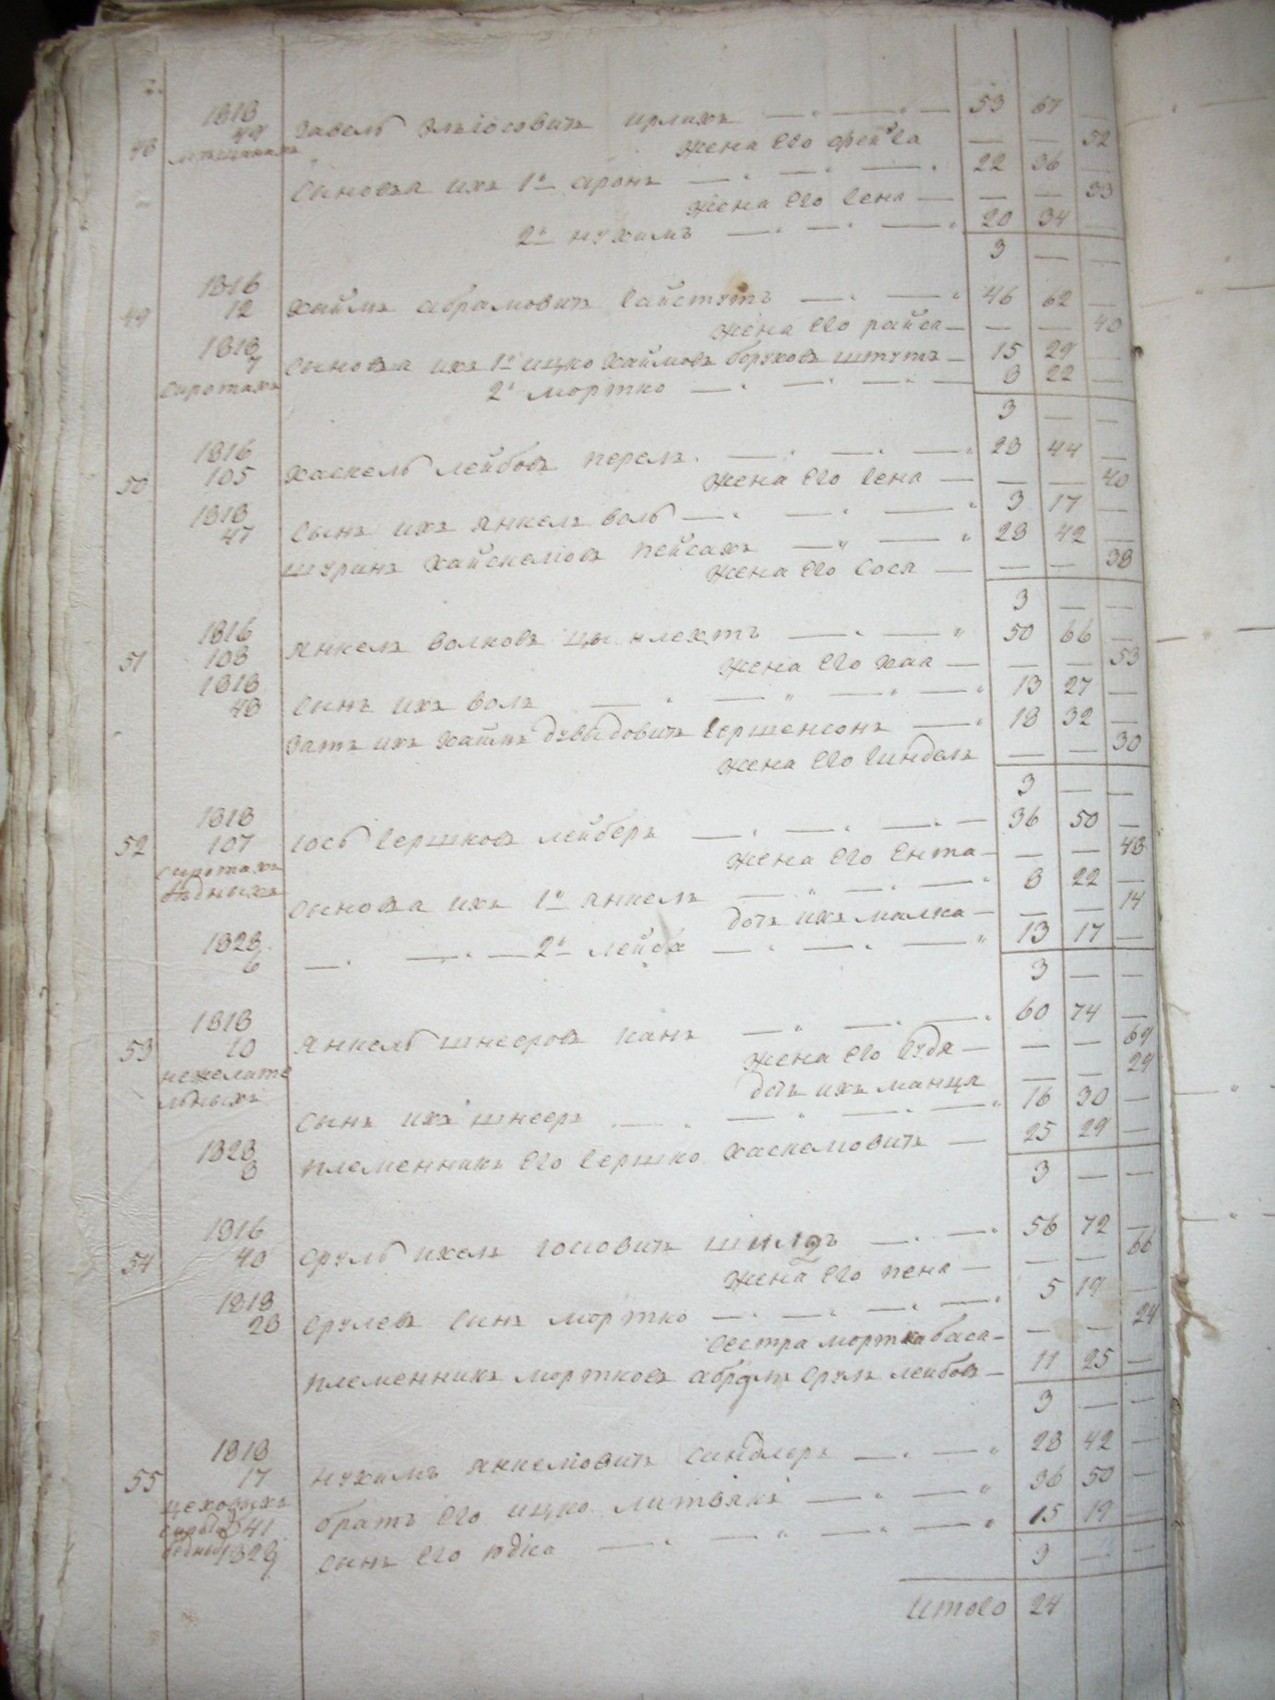 48 1818 49 мещанинъ Гавель Эліосовичъ Ирлихъ 53 67 —
жена его Фейга — — 52
Сыновья ихъ 1й Аронъ 22 36 —
жена его Гена — — 33
2й Нухимъ 20 34 —
3 — —
49 1816 12 Хаймъ Абрамовичъ 46 62 —
жена его Райса — — 40
1818 7 Сыновья ихъ 1й Ицко Хаймовъ 15 29 —
сиротахъ 2й Мортко 8 22 —
3 — —
50 1816 105 Хаскель Лейбовъ Перелъ 28 44 —
жена его Гена — — 40
1818 47 Сынъ ихъ Янкель Воль 3 17 —
шуринъ Хайскеліовъ Пейсахъ 28 42 —
жена его Сося — — 38
3 — —
51 1816 108 Янкель Волковъ 50 66 —
жена его Хая — — 53
1818 48 Сынъ ихъ Воль 13 27 —
Зять ихъ Хаймъ Давыдовичъ Гершенсонъ 18 32 —
жена его Гиндель — — 30
3 — —
52 1818 107 Іось Гершковъ Лейберъ 36 50 —
сиротахъ жена его Ента — — 48
бѣдныхъ Сыновья ихъ 1й Янкель 8 22 —
дочь ихъ Малка — — 14
1828 6 2й Лейба 13 17 —
3 — —
53 1818 10 Янкель Шнееровъ Канъ 60 74 —
нежелате жена его — — 69
льныхъ дочь ихъ Манця — — 29
Сынъ ихъ Шнееръ 16 30 —
1828 8 племенникъ его Гершко Хаскелювичъ 25 29 —
3 — —
54 1816 40 Сруль Ихель Іосіовичъ 56 72 —
жена его Пена — — 66
1818 28 Срулевъ Сынъ Мортко 5 19 —
сестра Мортка Баса — — 24
племенникъ Мортковъ Абрамъ Сруль Лейбовъ 11 25 —
3 — —
55 1818 17 Нухимъ Янкеліовичъ Сандлеръ 28 42 —
цеховыхъ брать его Ицко Литвякъ 36 50 —
41 1828 Сынъ его Юдка 15 19 —
3 — —
Итого 24